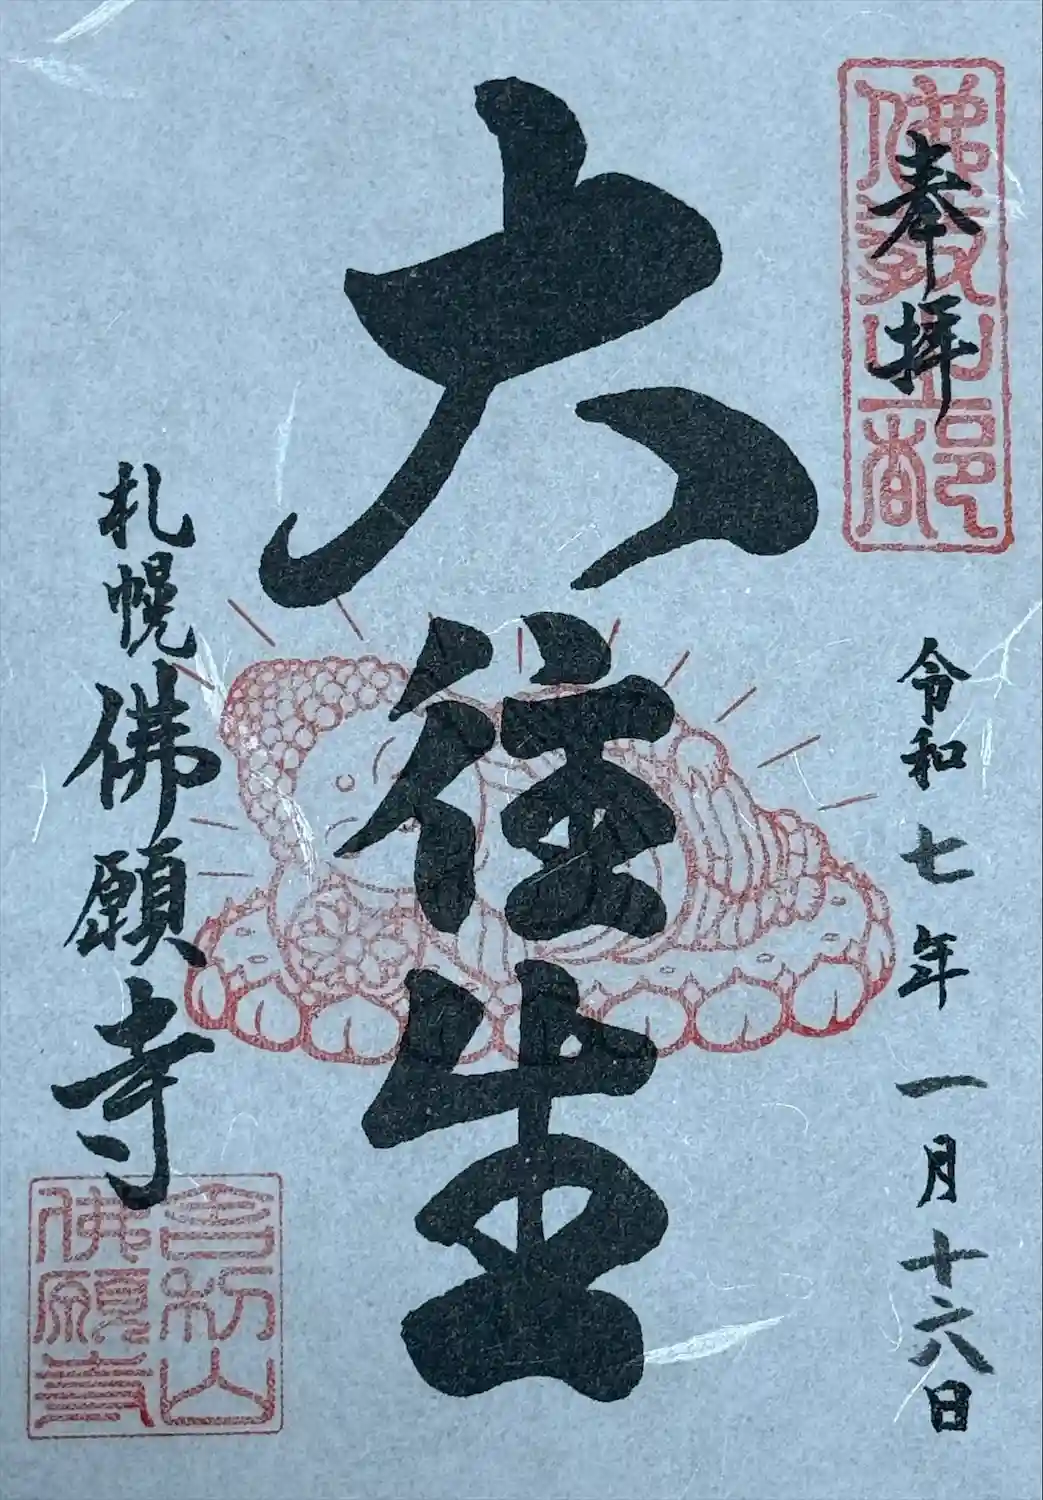 佛教之都
奉拝
令和七年一月十六日
大往生
札幌佛願寺
佛願寺